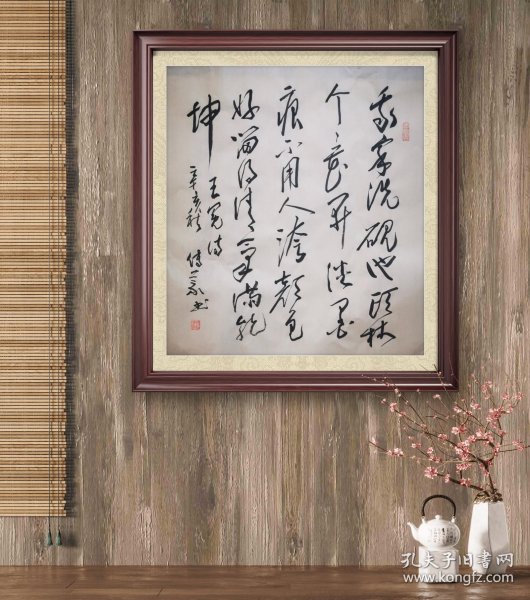 我家洗砚池头树
个々花开淡墨
痕不用人誇颜色
好留得清氣满乾
坤 王冕诗
秋 书
孔夫子旧书网
www.kongfz.com